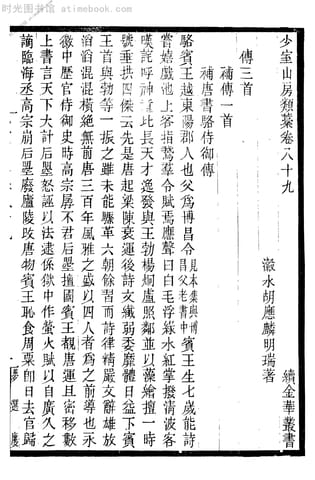 时光图书馆
www.book4times.com
少室山房類藁卷八十九　續金華叢書
瀫水胡應麟明瑞著
傳三首
補傳一首
補唐書駱侍御傳
駱賓王越東陽郡人也父為博昌令見本集與博昌父老書中賓王生七歲能詩
嘗嬉戲池上客指鵞羣令賦焉應聲曰白毛浮綠水紅掌撥清波客
嘆詫呼神童比長天才逸發與王勃楊炯盧照鄰並以藻繪擅一時
號垂拱四傑云先是唐起梁陳衰運後詩文纖弱委靡體日益下賓
王首與勃等一振之雖未能驟革六朝餘習而詩律精嚴文辭雄放
滔滔混混橫絶無前唐三百年風雅之盛以四人者為之前導也永
徽中歷官侍御史時高宗孱不君后墨擅圖賓王覩唐運且密移數
上書言天下大計后墨怒誣以法逮係獄中作螢火賦以自廣久之
謫臨海丞高宗崩后墨廢廬陵改唐物賓王恥食周粟即日去官歸